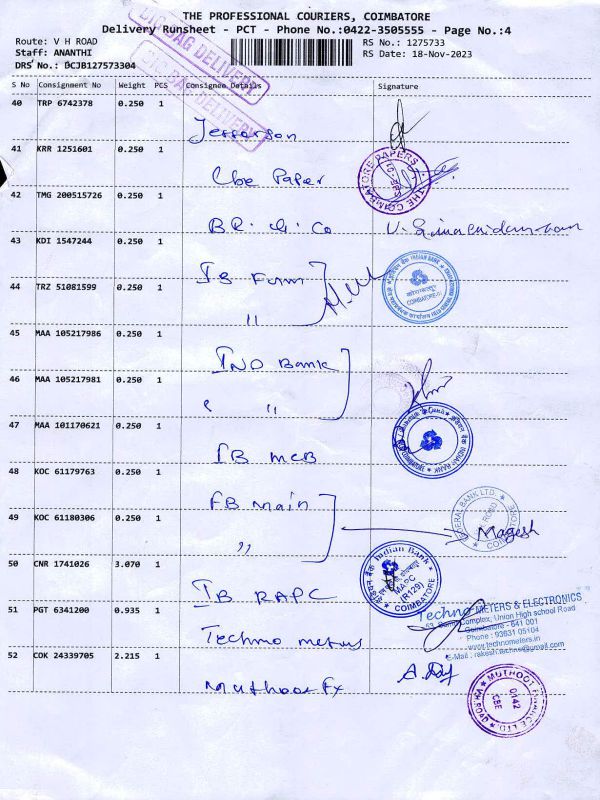 THE PROFESSIONAL COURIERS, COIMBATORE
Delivery Runsheet - PCT - Phone No.:0422-3505555 - Page No.:4
Route: V H ROAD
RS No.: 1275733
Staff: ANANTHI
RS Date: 18-Nov-2023
DRS No.: DCJB127573304
BIG BAG DELIVERY
BIG BAG DELIVERY
S No Consignment No Weight PCS Consignee Details Signature
40 TRP 6742378 0.250 1
Jefferson
41 KRR 1251601 0.250 1
Cbe Paper
THE COIMBATORE PAPERS
CBE-18
42 TMG 200515726 0.250 1
BR. G. Co
43 KDI 1547244 0.250 1
IB Furm
INDIAN BANK
COIMBATORE
44 TRZ 51081599 0.250 1
"
45 MAA 105217986 0.250 1
IND Bank
46 MAA 105217981 0.250 1
" "
47 MAA 101170621 0.250 1
IB MCB
INDIAN BANK
48 KOC 61179763 0.250 1
FB Main
FEDERAL BANK LTD.
49 KOC 61180306 0.250 1
"
Magesh
50 CNR 1741026 3.070 1
IB RAPC
Indian Bank
MAPC
(R129)
COIMBATORE
51 PGT 6341200 0.935 1
Techno meters
Techno METERS & ELECTRONICS
Complex, Union High school Road
Coimbatore - 641 001
Phone : 93631 05104
www.technometers.in
E-Mail : rakesh.techno@gmail.com
52 COK 24339705 2.215 1
Muthoot Fx
MUTHOOT FINANCE LTD.
0142
CBE